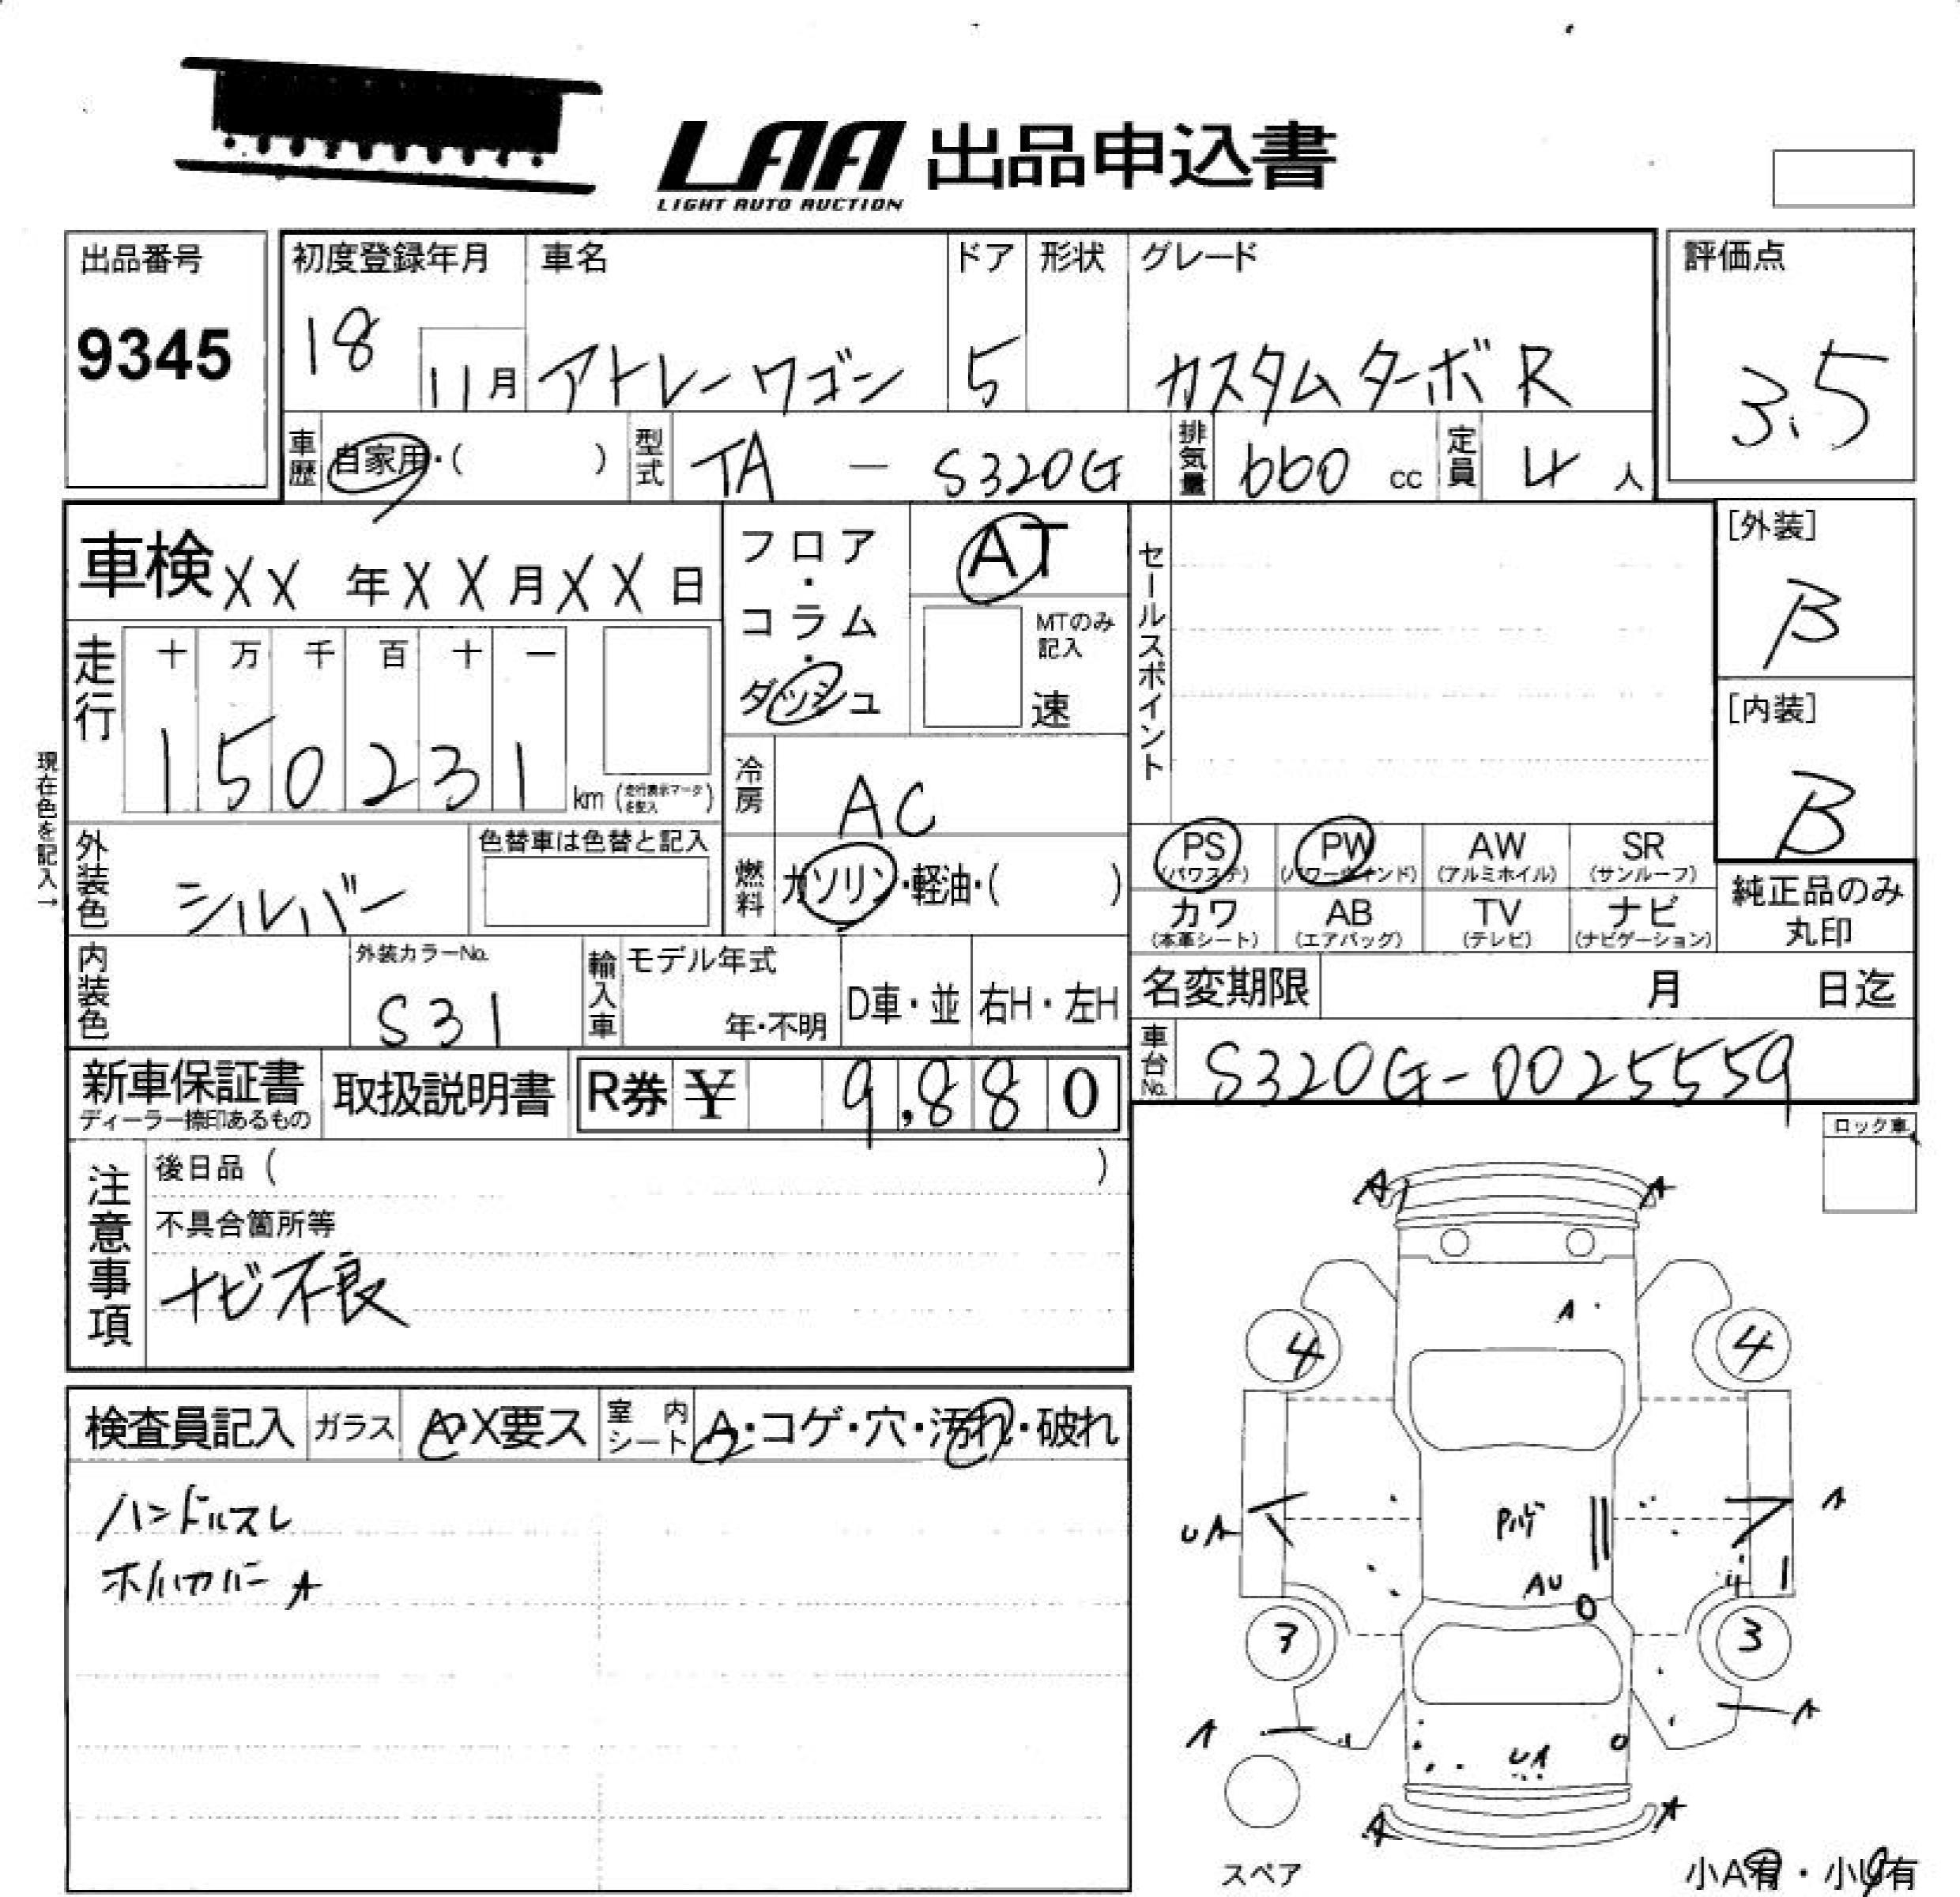 LAA 出品申込書
LIGHT AUTO AUCTION
出品番号
9345
初度登録年月
18
11月
車名
アトレーワゴン
ドア
5
形状
グレード
カスタムターボR
評価点
3.5
車歴
自家用・( )
型式
TA - S320G
排気量
660 cc
定員
4 人
車検 XX 年 XX 月 XX 日
フロア・コラム・ダッシュ
AT
MTのみ記入
速
セールスポイント
[外装]
B
[内装]
B
走行
十 万 千 百 十 一
1 5 0 2 3 1 km (走行表示マークを記入)
冷房
AC
現在色を記入→
外装色
シルバー
色替車は色替と記入
燃料
ガソリン・軽油・( )
PS (パワステ)
PW (パワーウインド)
AW (アルミホイル)
SR (サンルーフ)
カワ (本革シート)
AB (エアバッグ)
TV (テレビ)
ナビ (ナビゲーション)
純正品のみ丸印
内装色
外装カラーNo.
S31
輸入車
モデル年式
年・不明
D車・並
右H・左H
名変期限 月 日迄
車台No.
S320G-0025559
新車保証書
ディーラー捺印あるもの
取扱説明書
R券 ¥ 9,880
ロック車
注意事項
後日品 ( )
不具合箇所等
ナビ不良
検査員記入
ガラス
A・X要ス
室内シート
A・コゲ・穴・汚れ・破れ
ハンドルスレ
ホイルカバーA
A
A
A
4
4
UA
A
AU
3
3
A
A
UA
A
A
スペア
小A有・小U有